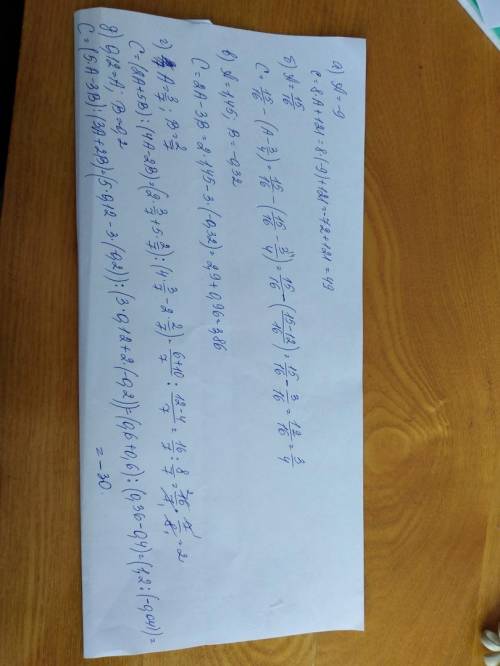 а) A=-9
C=8·A+121=8·(-9)+121=-72+121=49
б) A=15/16
C=15/16-(A-3/4)=15/16-(15/16-3/4)=15/16-(15-12/16)=15/16-3/16=12/16=3/4
в) A=1,45, B=-0,32
C=2A-3B=2·1,45-3·(-0,32)=2,9+0,96=3,86
г) A=3/7; B=2/7
C=(2A+5B):(4A-2B)=(2·3/7+5·2/7):(4·3/7-2·2/7)=6+10/7:12-4/7=16/7:8/7=16/7·7/8=2
д) 0,12=A; B=-0,2
C=(5A-3B):(3A+2B)=(5·0,12-3·(-0,2)):(3·0,12+2·(-0,2))=(0,6+0,6):(0,36-0,4)=(1,2:(-0,04))=
=-30